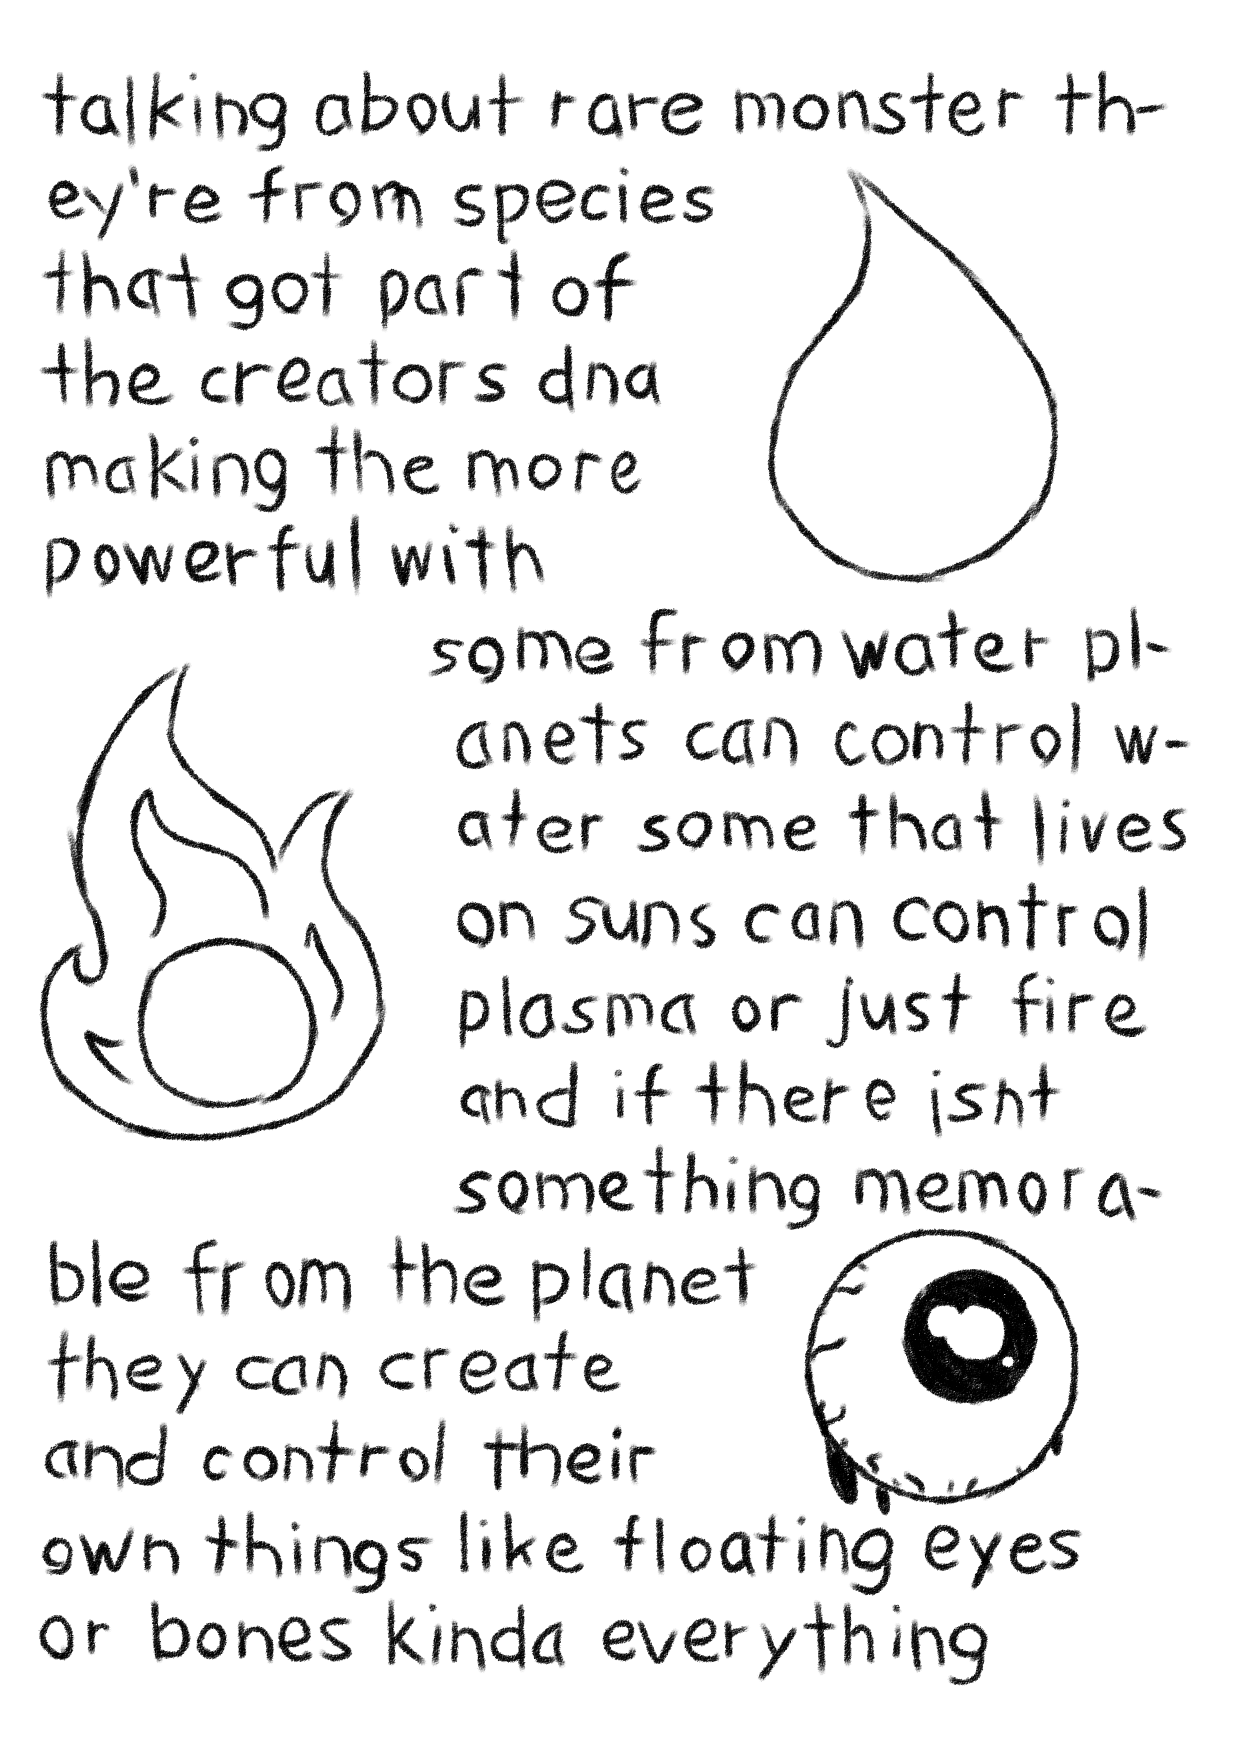 talking about rare monster th-
ey're from species
that got part of
the creators dna
making the more
powerful with
some from water pl-
anets can control w-
ater some that lives
on suns can control
plasma or just fire
and if there isnt
something memora-
ble from the planet
they can create
and control their
own things like floating eyes
or bones kinda everything